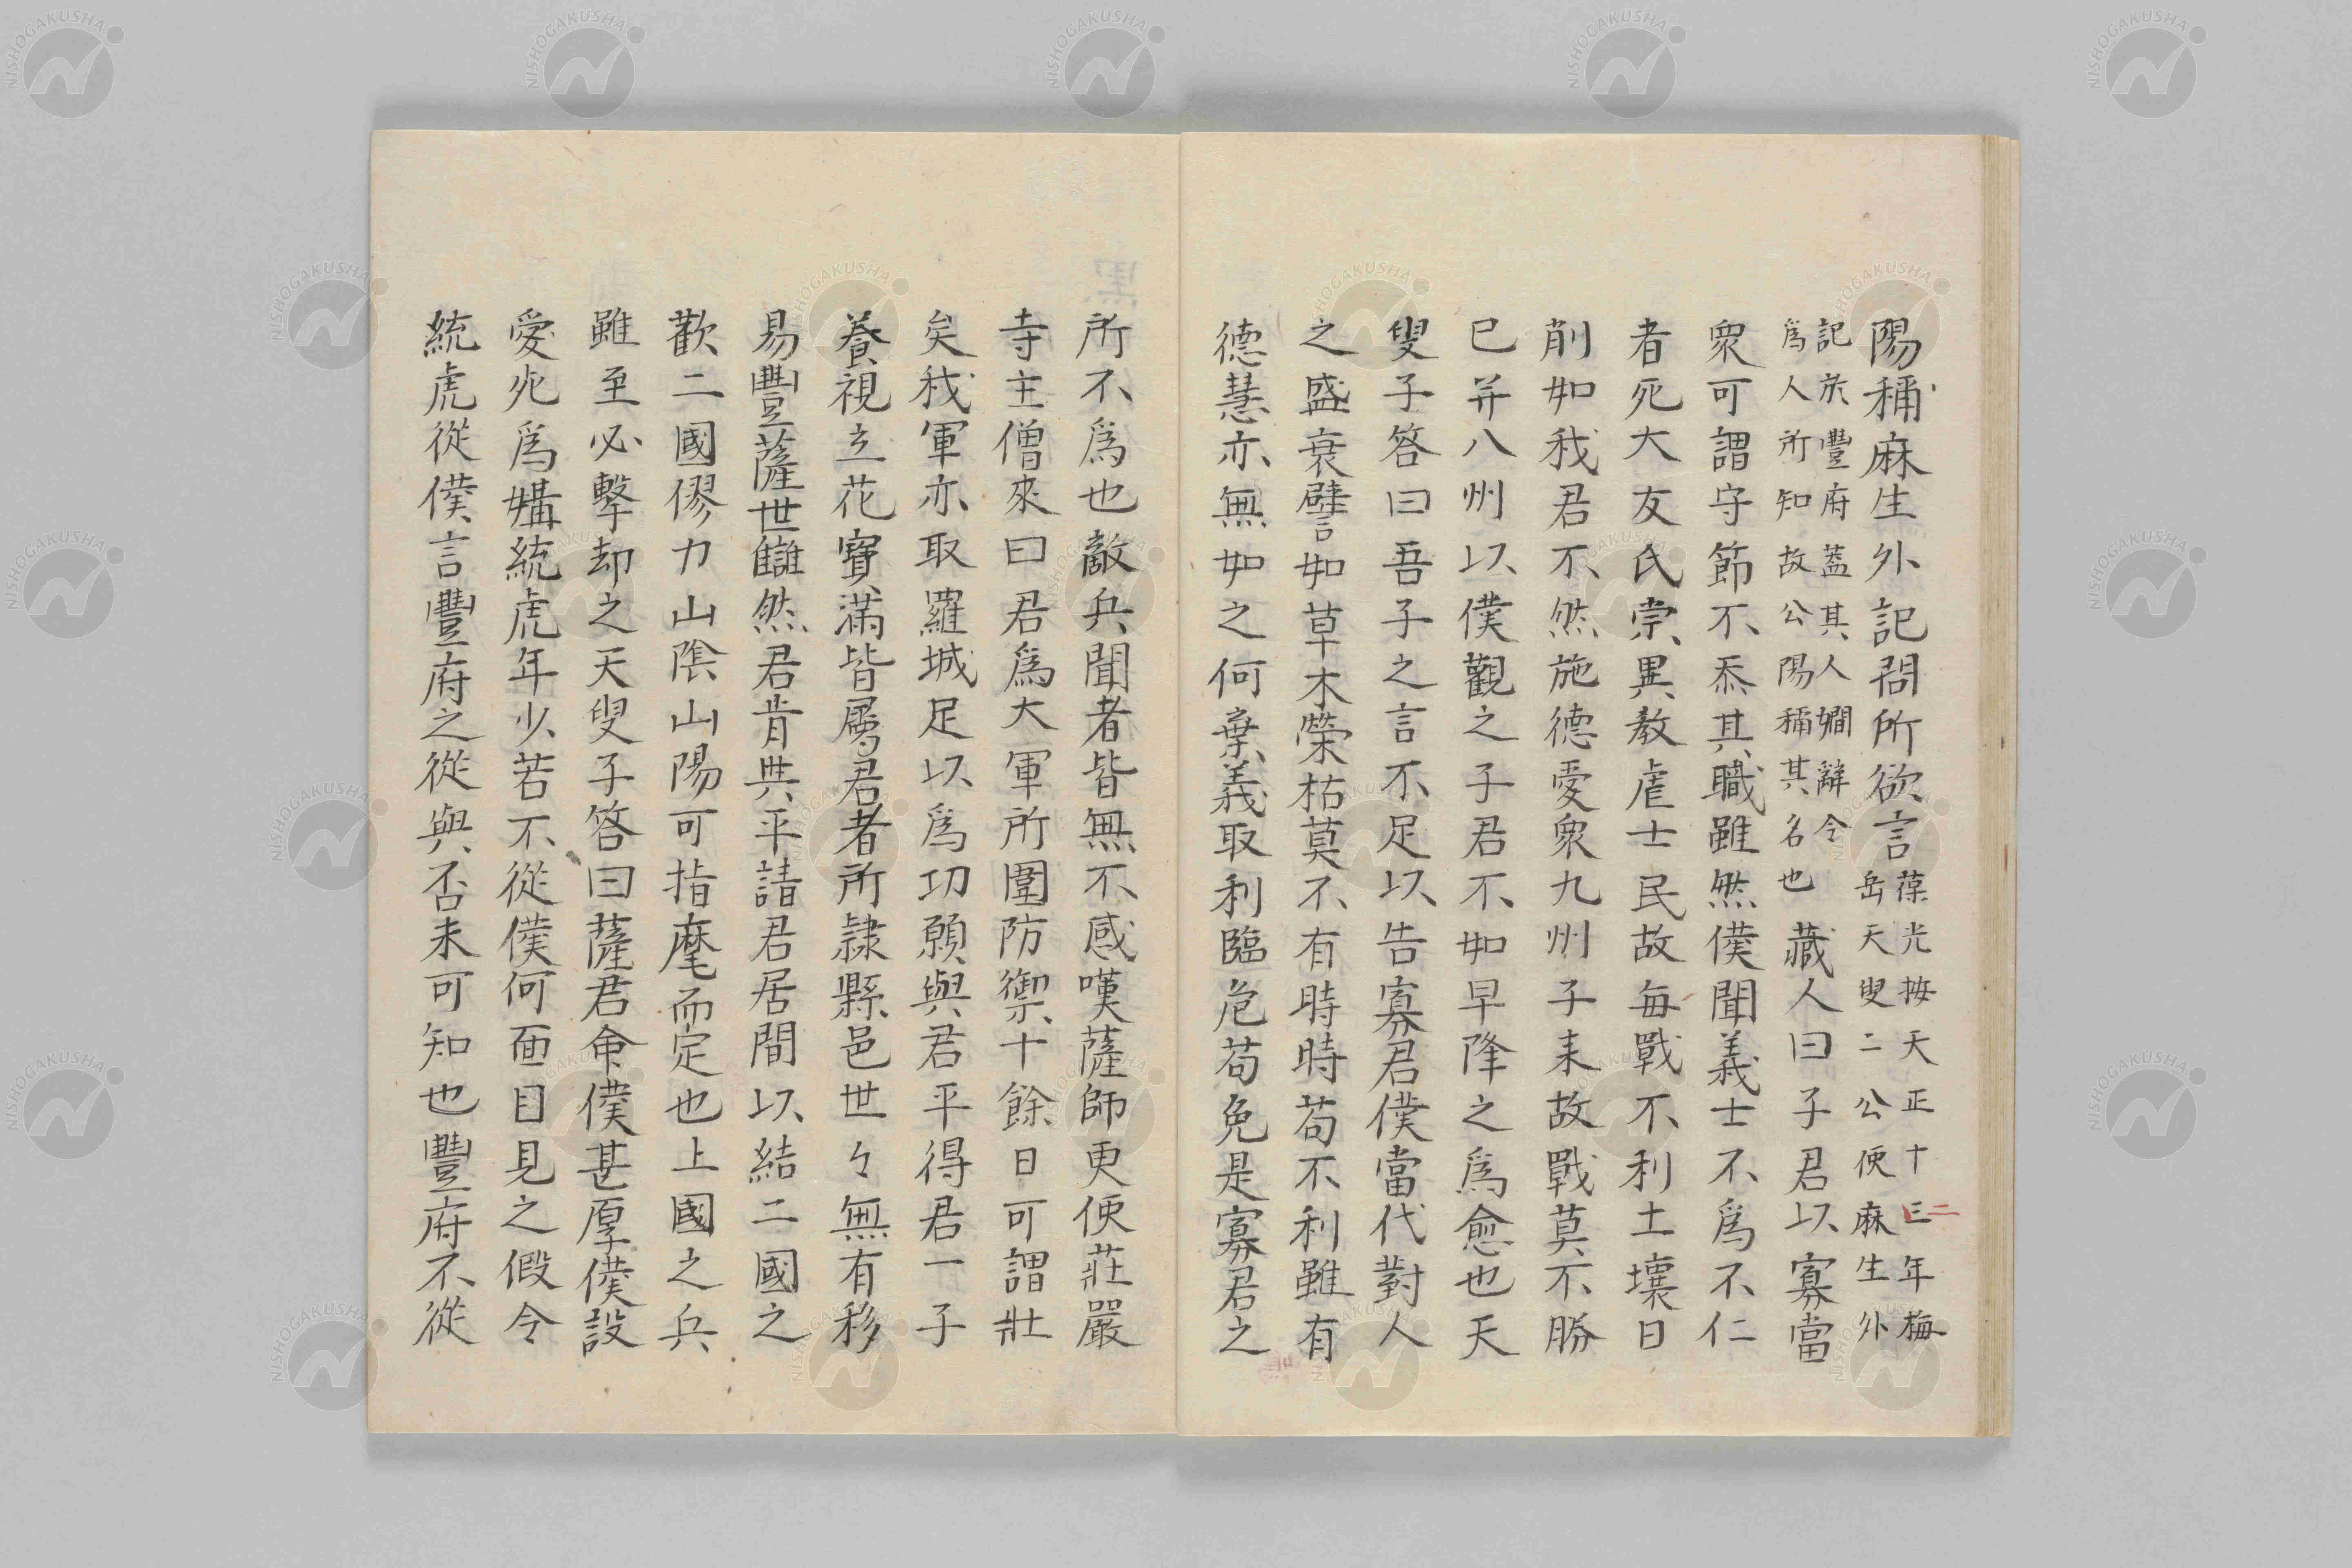 陽稱麻生外記問所欲言葆光按天正十三年梅
岳天叟二公使麻生外
記於豐府蓋其人嫺辭令
爲人所知故公陽稱其名也藏人曰子君以寡當
衆可謂守節不忝其職雖然僕聞義士不爲不仁
者死大友氏崇異教虐士民故每戰不利土壤日
削如我君不然施德愛衆九州子來故戰莫不勝
已并八州以僕觀之子君不如早降之爲愈也天
叟子答曰吾子之言不足以告寡君僕當代對人
之盛衰譬如草木榮枯莫不有時時苟不利雖有
德慧亦無如之何棄義取利臨危苟免是寡君之
所不爲也敵兵聞者皆無不感嘆薩師更使莊嚴
寺主僧來曰君爲大軍所圍防禦十餘日可謂壯
矣我軍亦取羅城足以爲功願與君平得君一子
養視立花寶滿皆屬君者所隷縣邑世々無有移
易豐薩世讎然君肯與平請君居間以結二國之
歡二國僇力山陰山陽可指麾而定也上國之兵
雖至必擊却之天叟子答曰薩君命僕甚厚僕設
愛死爲媾統虎年少若不從僕何面目見之假令
統虎從僕言豐府之從與否未可知也豐府不從
二
NISHOGAKUSHA